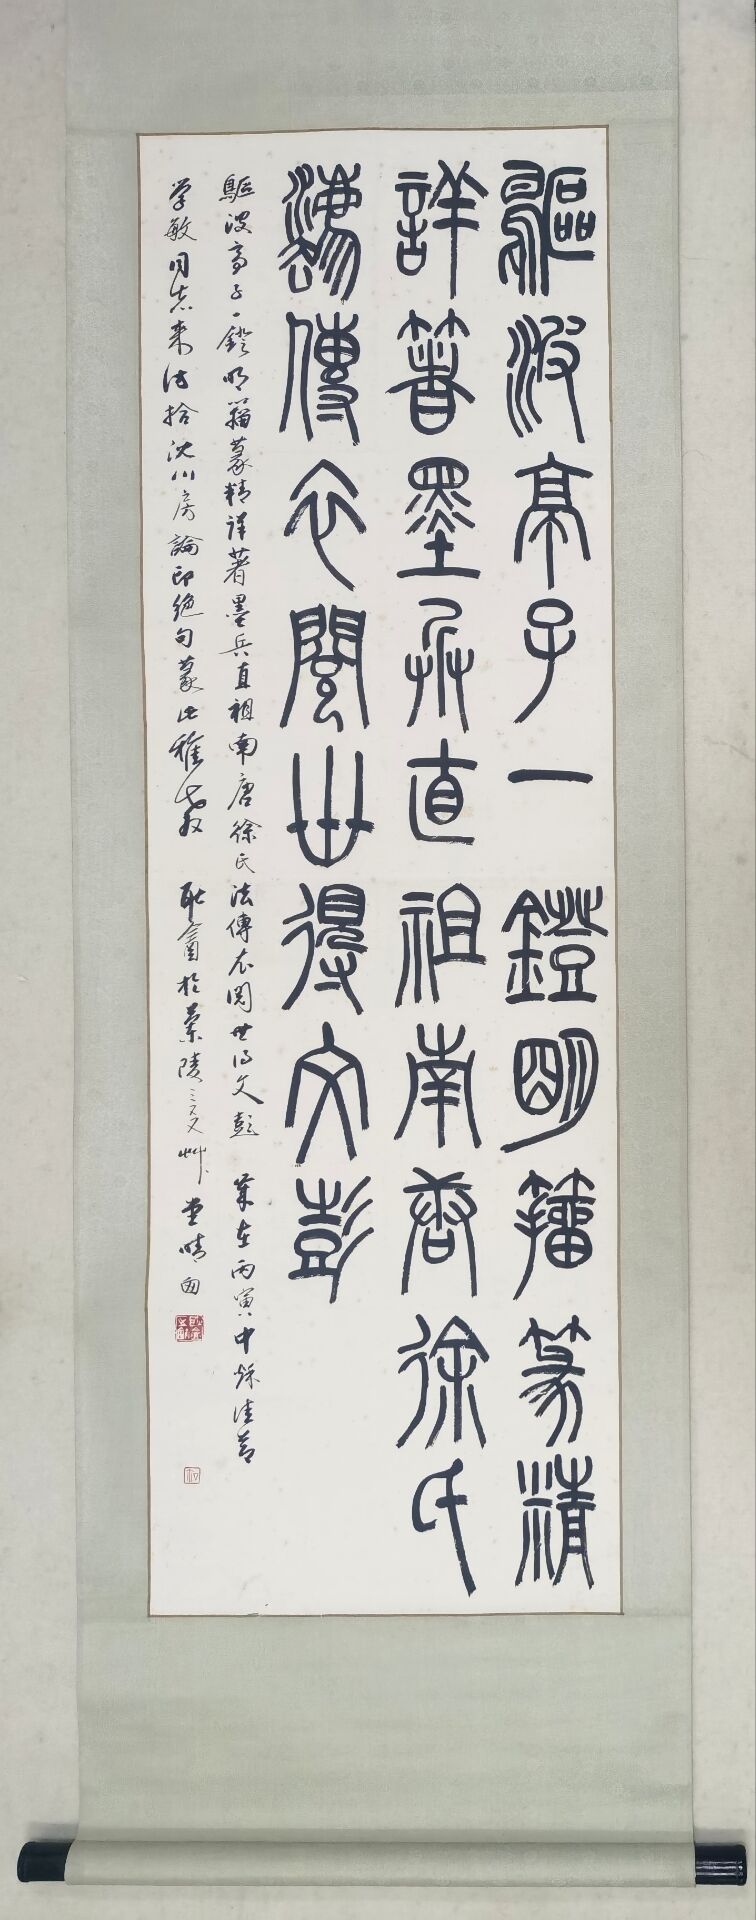 驅波亭子一鐙明籀篆精
詳著墨兵直祖南唐徐氏
灋傳衣閱世得文彭
驅波亭子一鐙明籀篆精詳著墨兵直祖南唐徐氏法傳衣閱世得文彭 歲在丙寅中秋佳節
学敏同志来访拾沈川房論印絕句篆此雅教 耿龕於蘭陵三艸堂晴囱